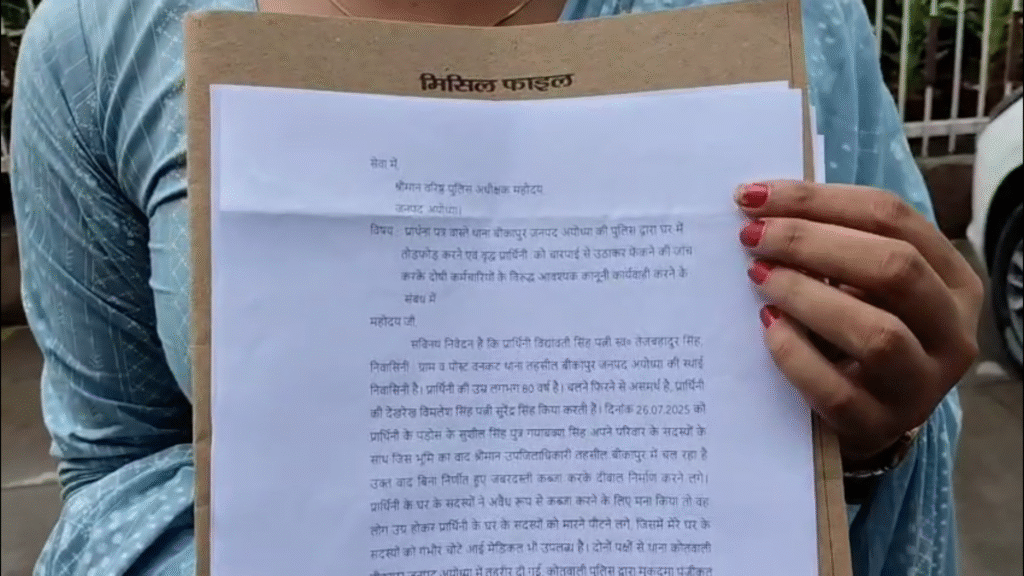 मिसिल फाइल
सेवा में,
श्रीमान वरिष्ठ पुलिस अधीक्षक महोदय
जनपद अयोध्या।
विषय : प्रार्थना पत्र वास्ते थाना बीकापुर जनपद अयोध्या की पुलिस द्वारा घर में
तोड़फोड़ करने एवं वृद्ध प्रार्थिनी को चारपाई से उठाकर फेंकने की जांच
करके दोषी कर्मचारियों के विरुद्ध आवश्यक कानूनी कार्यवाही करने के
संबंध में
महोदय जी,
सविनय निवेदन है कि प्रार्थिनी विद्यावती सिंह पत्नी स्व० तेजबहादुर सिंह,
निवासिनी ग्राम व पोस्ट वनकट थाना तहसील बीकापुर जनपद अयोध्या की स्थाई
निवासिनी है। प्रार्थिनी की उम्र लगभग 80 वर्ष है। चलने फिरने से असमर्थ है, प्रार्थिनी
की देखरेख विमलेश सिंह पत्नी सुरेंद्र सिंह किया करती है। दिनांक 26.07.2025 को
प्रार्थिनी के पड़ोस के सुशील सिंह पुत्र गयाबक्श सिंह अपने परिवार के सदस्यों के
साथ जिस भूमि का वाद श्रीमान उपजिलाधिकारी तहसील बीकापुर में चल रहा है
उक्त वाद बिना निर्णीत हुए जबरदस्ती कब्जा करके दीवाल निर्माण करने लगे।
प्रार्थिनी के घर के सदस्यों ने अवैध रूप से कब्जा करने के लिए मना किया तो वह
लोग उग्र होकर प्रार्थिनी के घर के सदस्यों को मारने पीटने लगे, जिसमें मेरे घर के
सदस्यों को गंभीर चोटे आई मेडिकल भी उपलब्ध है। दोनों पक्षों से थाना कोतवाली
बीकापुर जनपद अयोध्या में तहरीर दी गई, कोतवाली पुलिस द्वारा मुकदमा पंजीकृत